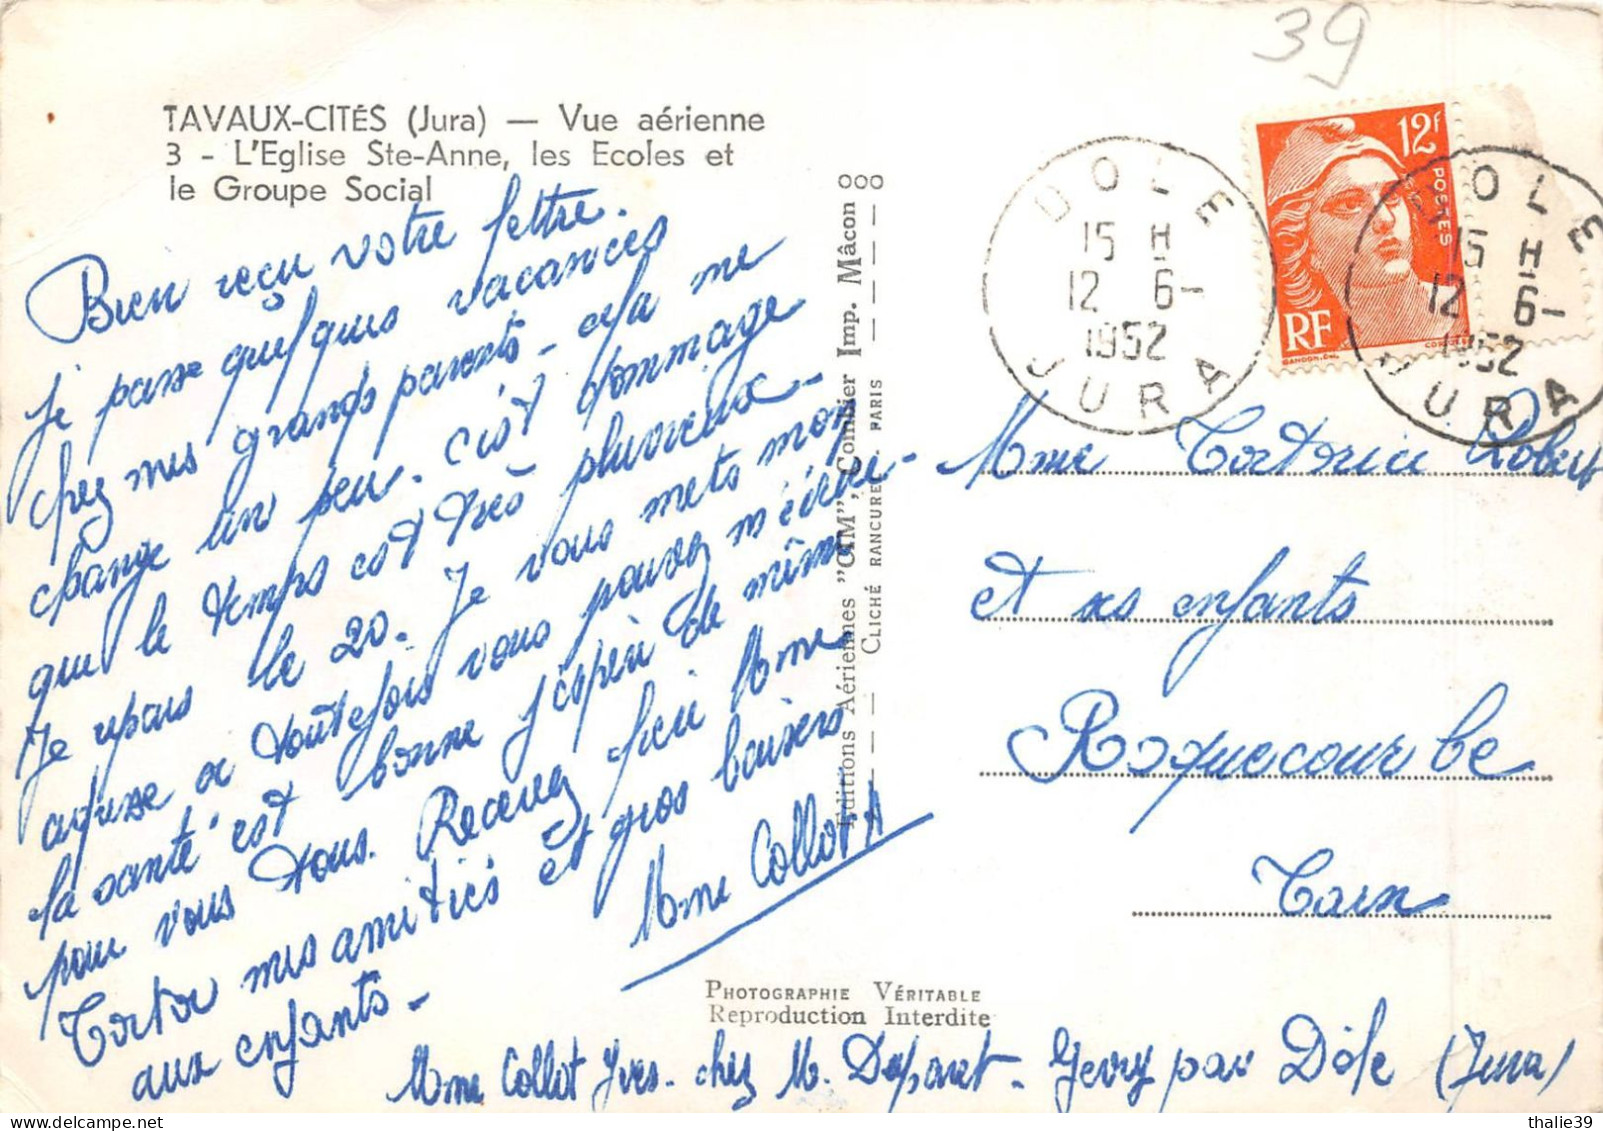 39
TAVAUX-CITÉS (Jura) — Vue aérienne
3 - L'Eglise Ste-Anne, les Ecoles et
le Groupe Social
Bien reçu votre lettre.
Je passe quelques vacances
chez mes grands parents - cela me
change un peu. c'est dommage
que le temps est très pluvieux -
Je repars le 20. Je vous mets mon
adresse si toutefois vous pouvez m'écrire -
la santé est bonne j'espère de même
pour vous tous. Recevez chère Mme
mes amitiés et gros baisers
aux enfants -
Mme Collot A
Editions Aériennes "CIM", Combier Imp. Mâcon
CLICHÉ RANCUREL. PARIS
PHOTOGRAPHIE VÉRITABLE
Reproduction Interdite
Mme Collot Yves. chez M. Deparet - Gevry par Dôle (Jura)
DOLE
15 H
12 6-
1952
JURA
12F
POSTES
RF
GANDON.DEL.
DOLE
15 H
12 6-
1952
JURA
Mme Robert
et ses enfants
Roquecourbe
Tarn
thalie39